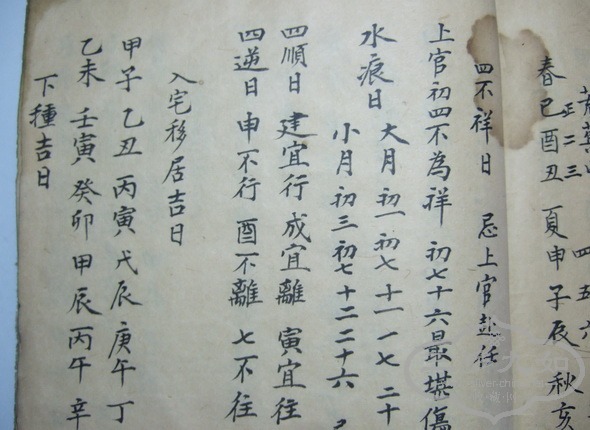 正二三 四五六
春巳酉丑 夏申子辰 秋亥
四不祥日 忌上官赴任
上官初四不為祥 初七十六最堪傷
水痕日 大月初一初七十一一七二十
小月初三初七十二二十六
四順日 建宜行成宜離 寅宜往
四逆日 申不行 酉不離 七不往
入宅移居吉日
甲子 乙丑 丙寅 戊辰 庚午 丁
乙未 壬寅 癸卯 甲辰 丙午 辛
下種吉日